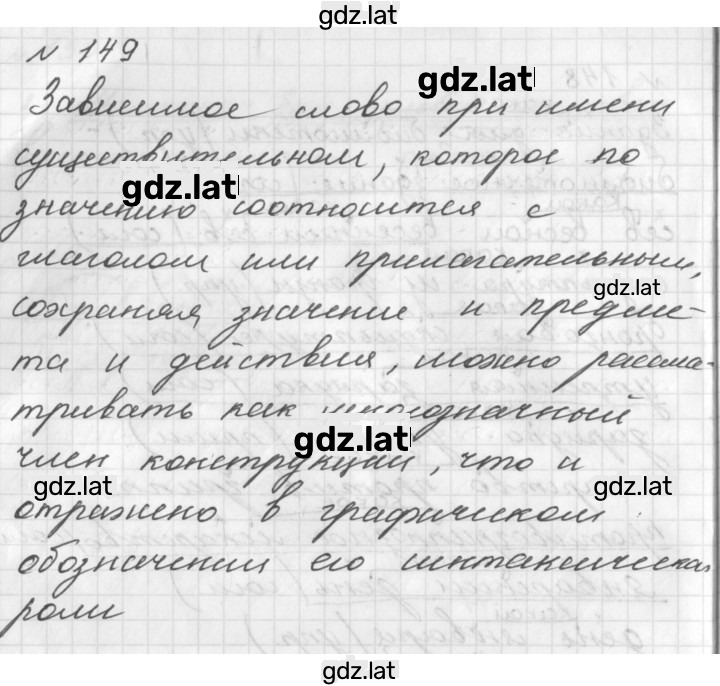 gdz.lat
N 149
gdz.lat
Зависимое слово при имени
существительном, которое по
gdz.lat
значению соотносится с
глаголом или прилагательным,
gdz.lat
сохраняя значение и предме-
та и действия, можно рассма-
тривать как многозначный
gdz.lat
член конструкции, что и
gdz.lat gdz.lat
отражено в графическом
обозначении его синтаксическая
роли
gdz.lat